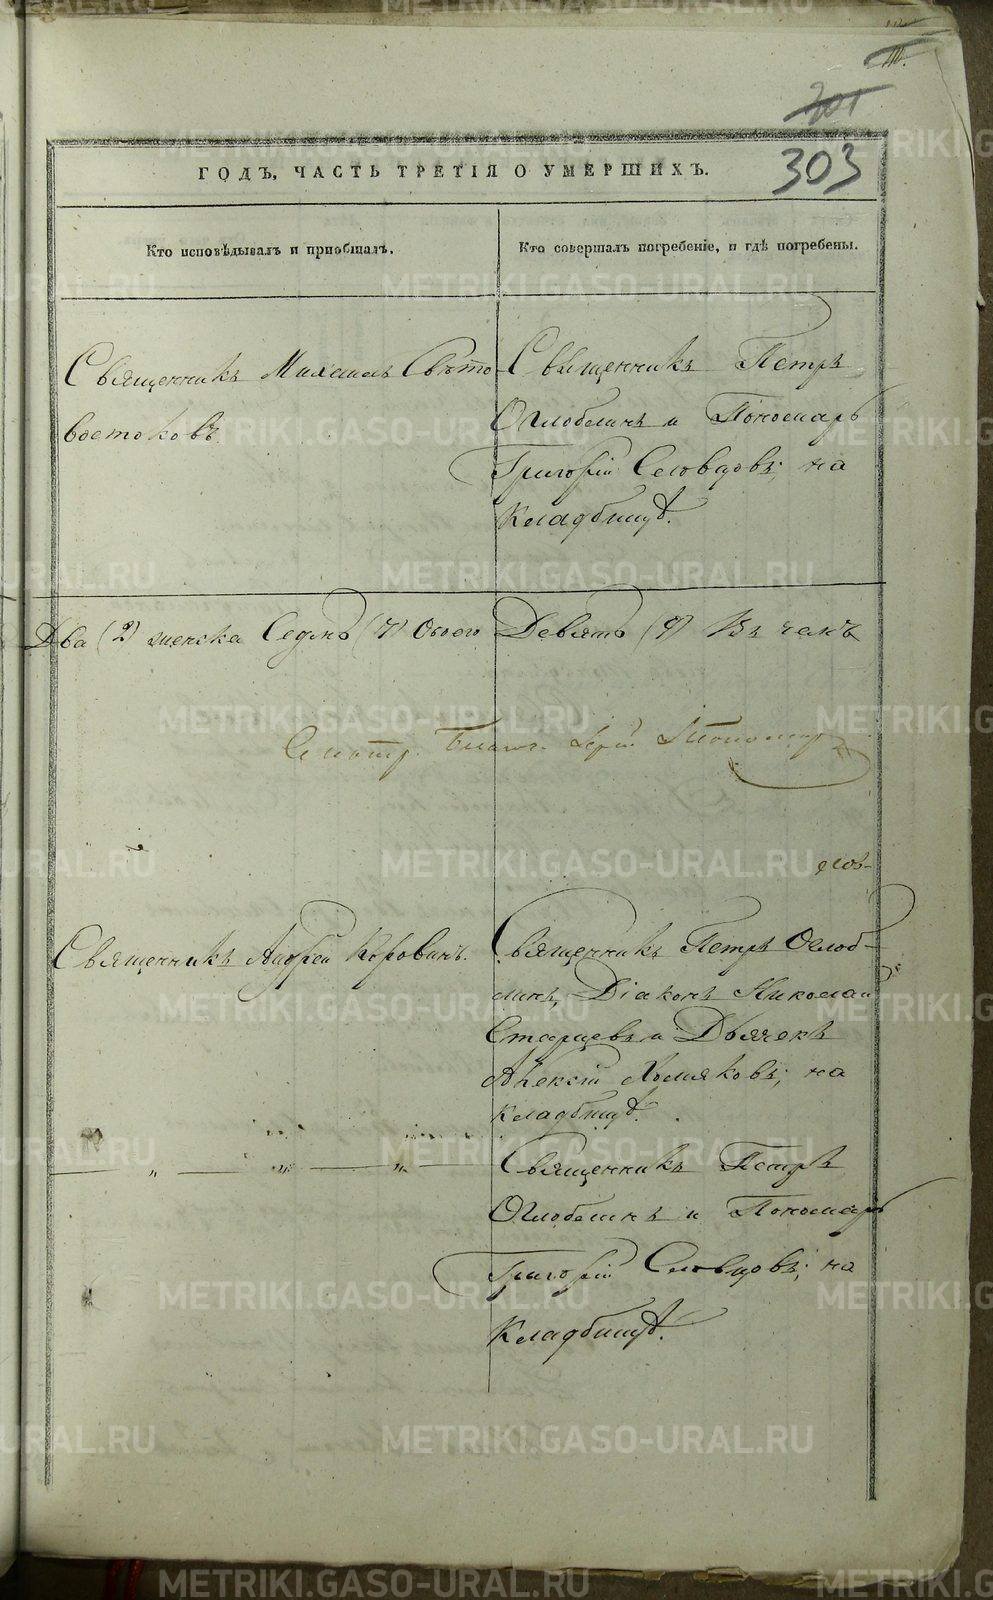 301
303
ГОДЪ, ЧАСТЬ ТРЕТІЯ О УМЕРШИХЪ.
Кто исповѣдывалъ и пріобщалъ.
Кто совершалъ погребеніе, и гдѣ погребены.
Священникъ Михаилъ Свѣто
востоковъ
Священникъ Петръ
Оглоблинъ и Пономарь
Григорій Словцовъ; на
Кладбищѣ.
Два (2) женска Седмь (7) Обоего Девять (9)
Смотр. Благоч. Іерей
Священникъ Андрей Коровинъ.
Священникъ Петръ Оглоб-
линъ, Діаконъ Николай
Старцевъ и Дьячекъ
Алексій Хомяковъ; на
кладбищѣ.
— „ — „ — „ —
Священникъ Петръ
Оглоблинъ и Пономарь
Григорій Словцовъ; на
Кладбищѣ.
METRIKI.GASO-URAL.RU